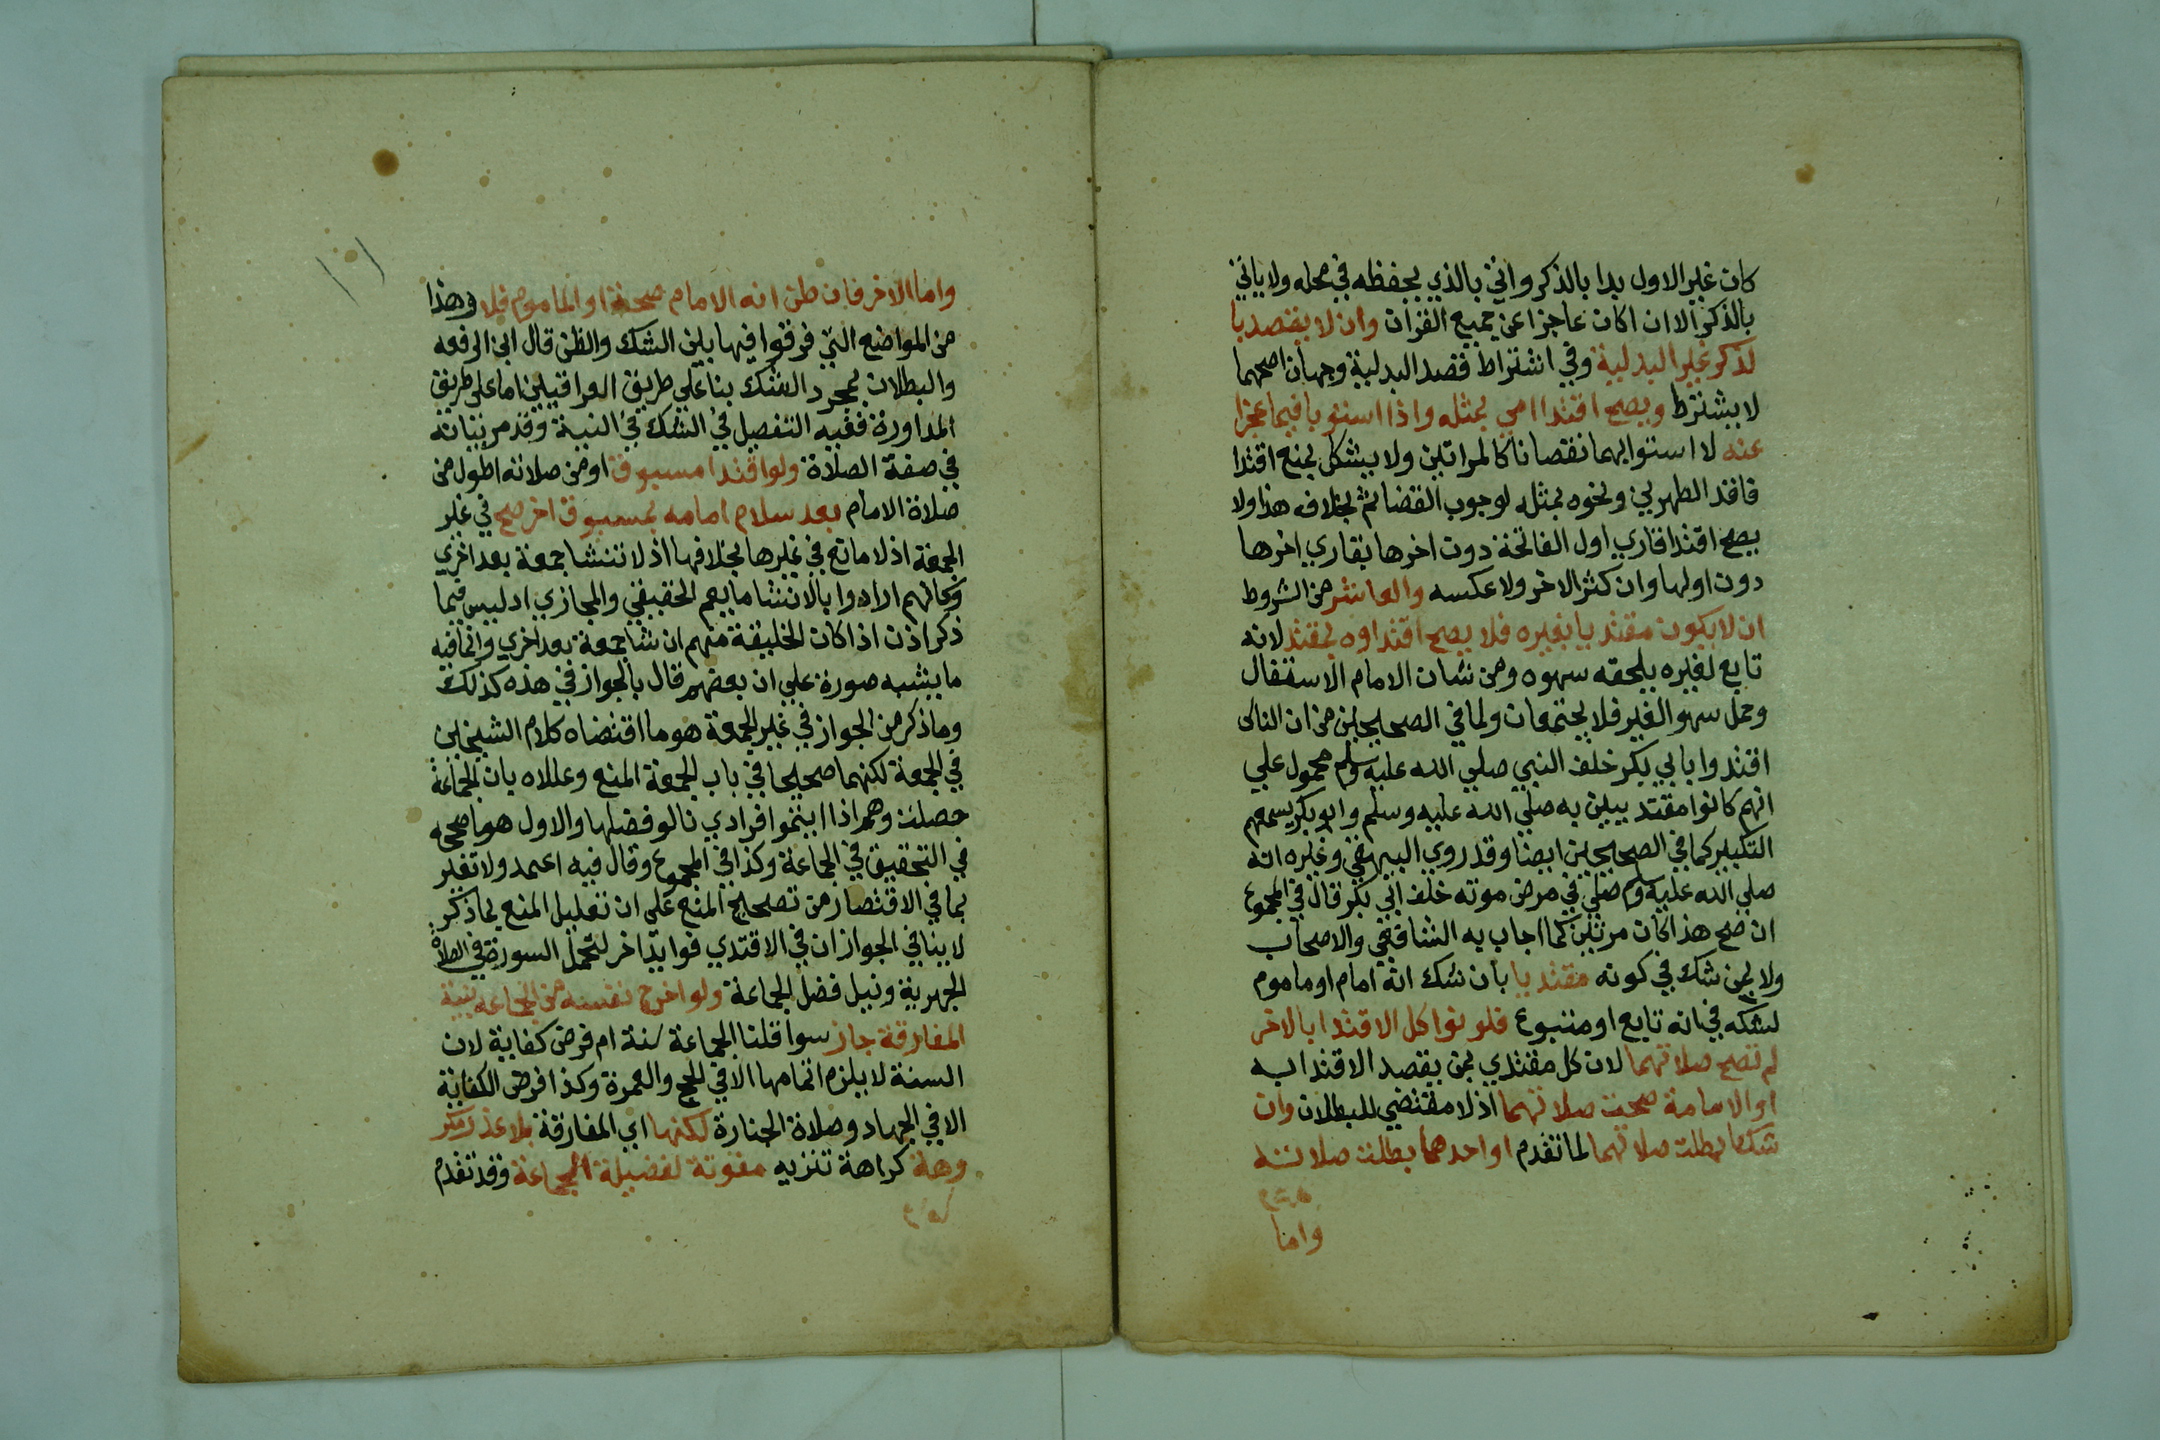 كان غير الاول بدا بالذكر واتي بالذي يحفظه في محله ولا ياتي
بالذكر الا ان كان عاجزا عن جميع القران وان لا يقصد با
لذكر غير البدلية وفي اشتراط قصد البدلية وجهان اصحهما
لا يشترط ويصح اقتدا امي بمثله واذا استويا فيما عجزا
عنه لا استوايهما نقصانا كالمراتين ولا يشكل بمنع اقتدا
فاقد الطهرين ونحوه بمثله لوجوب القضا ثم بخلافه هذا ولا
يصح اقتدا قاري اول الفاتحة دون اخرها بقاري اخرها
دون اولها وان كثر الاخر ولا عكسه والعاشر من الشروط
ان لا يكون مقتديا بغيره فلا يصح اقتداوه بمقتد لانه
تابع لغيره يلحقه سهوه ومن شان الامام الاستقلال
وحمل سهو الغير فلا يجتمعان ولما في الصحيحين من ان الناس
اقتدوا بابي بكر خلف النبي صلي الله عليه وسلم محمول علي
انهم كانوا مقتديين به صلي الله عليه وسلم وابو بكر يسمعهم
التكبير كما في الصحيحين ايضا وقد روي البيهقي وغيره انه
صلي الله عليه وسلم صلي في مرض موته خلف ابي بكر قال في المجموع
ان صح هذا كان مرتين كما اجاب به الشافعي والاصحاب
ولا بمن شك في كونه مقتديا بان شك انه امام او ماموم
لشكه في انه تابع او متبوع فلو نوا كل الاقتدا بالاخر
لم تصح صلاتهما لان كل مقتدي بمن يقصد الاقتدا به
او الامامة صحت صلاتهما اذ لا مقتضي للبطلان وان
شكا بطلت صلاتهما لما تقدم او احدهما بطلت صلاته
واما
واما الاخر فان ظن انه الامام صحت او الماموم فلا وهذا
من المواضع التي فرقوا فيها بين الشك والظن قال ابن الرفعه
والبطلان بمجرد الشك بنا علي طريق العراقيين اما علي طريق
المداورة ففيه التفصيل في الشك في النية وقد مر بيانه
في صفة الصلاة ولو اقتدا مسبوق او من صلاته اطول من
صلاة الامام بعد سلام امامه بمسبوق اخر صح في غير
الجمعة اذ لا مانع في غيرها بخلافها اذ لا تنشا جمعة بعد اخري
وكانهم ارادوا بالانشا ما يعم الحقيقي والمجازي اذ ليس فيما
ذكر اذن اذا كان الخليفة منهم انشا جمعة بعد اخري وانما فيه
ما يشبه صورة علي ان بعضهم قال بالجواز في هذه كذلك
وما ذكر من الجواز في غير الجمعة هو ما اقتضاه كلام الشيخين
في الجمعة لكنهما صححا في باب الجمعة المنع وعللاه بان الجماعة
حصلت وهم اذا اتموا فرادي نالو فضلها والاول هو ما صححه
في التحقيق في الجماعة وكذا في المجموع وقال فيه اعتمد ولا تغتر
بما في الاقتصار من تصحيح المنع علي ان تعليل المنع بما ذكر
لا ينافي الجواز ان في الاقتدي فوايد اخر لتحمل السورة في الصلاة
الجهرية ونيل فضل الجماعة ولو اخرج نفسه من الجماعة بنية
المفارقة جاز سوا قلنا الجماعة سنة ام فرض كفاية لان
السنة لا يلزم اتمامها الا في الحج والعمرة وكذا فرض الكفاية
الا في الجهاد وصلاة الجنازة لكنها اي المفارقة بلا عذر مكر
وهة كراهة تنزيه مفوتة لفضيلة الجماعة وقد تقدم